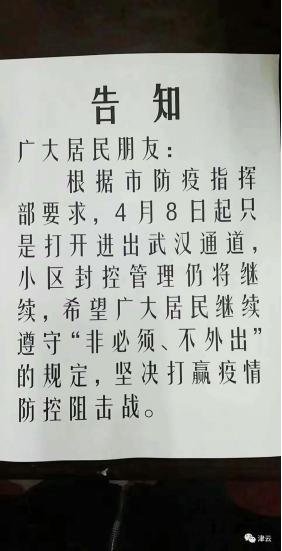 告知
广大居民朋友：
根据市防疫指挥
部要求，4月8日起只
是打开进出武汉通道，
小区封控管理仍将继
续，希望广大居民继续
遵守“非必须、不外出”
的规定，坚决打赢疫情
防控阻击战。
津云